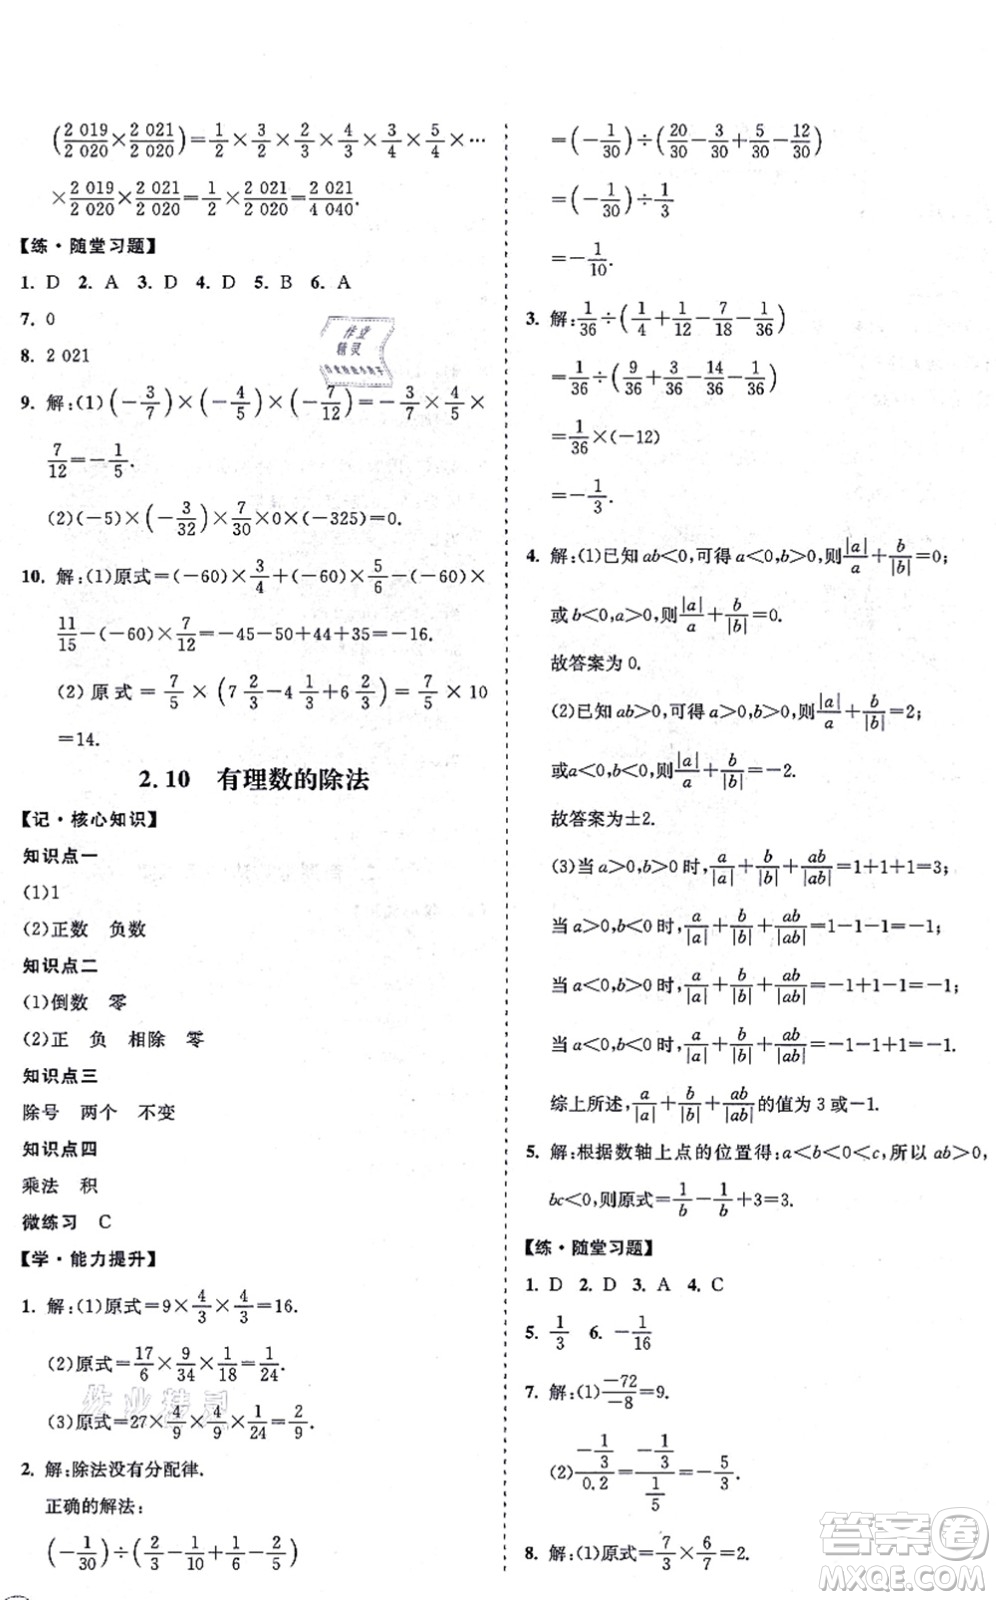 (2 019/2 020×2 021/2 020)=1/2×3/2×2/3×4/3×3/4×5/4×⋯
×2 019/2 020×2 021/2 020=1/2×2 021/2 020=2 021/4 040.
【练·随堂习题】
1. D 2. A 3. D 4. D 5. B 6. A
7. 0
8. 2 021
9. 解:(1)(-3/7)×(-4/5)×(-7/12)=-3/7×4/5×
7/12=-1/5.
(2)(-5)×(-3/32)×7/30×0×(-325)=0.
10. 解:(1)原式=(-60)×3/4+(-60)×5/6-(-60)×
11/15-(-60)×7/12=-45-50+44+35=-16.
(2)原式=7/5×(7 2/3-4 1/3+6 2/3)=7/5×10
=14.
2.10 有理数的除法
【记·核心知识】
知识点一
(1)1
(2)正数 负数
知识点二
(1)倒数 零
(2)正 负 相除 零
知识点三
除号 两个 不变
知识点四
乘法 积
微练习 C
【学·能力提升】
1. 解:(1)原式=9×4/3×4/3=16.
(2)原式=17/6×9/34×1/18=1/24.
(3)原式=27×4/9×4/9×1/24=2/9.
2. 解:除法没有分配律.
正确的解法:
(-1/30)÷(2/3-1/10+1/6-2/5)
=(-1/30)÷(20/30-3/30+5/30-12/30)
=(-1/30)÷1/3
=-1/10.
3. 解:1/36÷(1/4+1/12-7/18-1/36)
=1/36÷(9/36+3/36-14/36-1/36)
=1/36×(-12)
=-1/3.
4. 解:(1)已知ab<0,可得a<0,b>0,则|a|/a+b/|b|=0;
或b<0,a>0,则|a|/a+b/|b|=0.
故答案为0.
(2)已知ab>0,可得a>0,b>0,则|a|/a+b/|b|=2;
或a<0,b<0,则|a|/a+b/|b|=-2.
故答案为±2.
(3)当a>0,b>0时,a/|a|+b/|b|+ab/|ab|=1+1+1=3;
当a>0,b<0时,a/|a|+b/|b|+ab/|ab|=1-1-1=-1;
当a<0,b>0时,a/|a|+b/|b|+ab/|ab|=-1+1-1=-1;
当a<0,b<0时,a/|a|+b/|b|+ab/|ab|=-1-1+1=-1.
综上所述,a/|a|+b/|b|+ab/|ab|的值为3或-1.
5. 解:根据数轴上点的位置得:a<b<0<c,所以ab>0,
bc<0,则原式=1/b-1/b+3=3.
【练·随堂习题】
1. D 2. D 3. A 4. C
5. 1/3 6. -1/16
7. 解:(1)-72/-8=9.
(2)(-1/3)/0.2=(-1/3)/(1/5)=-5/3.
8. 解:(1)原式=7/3×6/7=2.
作业
精灵
作业精灵
答案卷
MXQE.COM